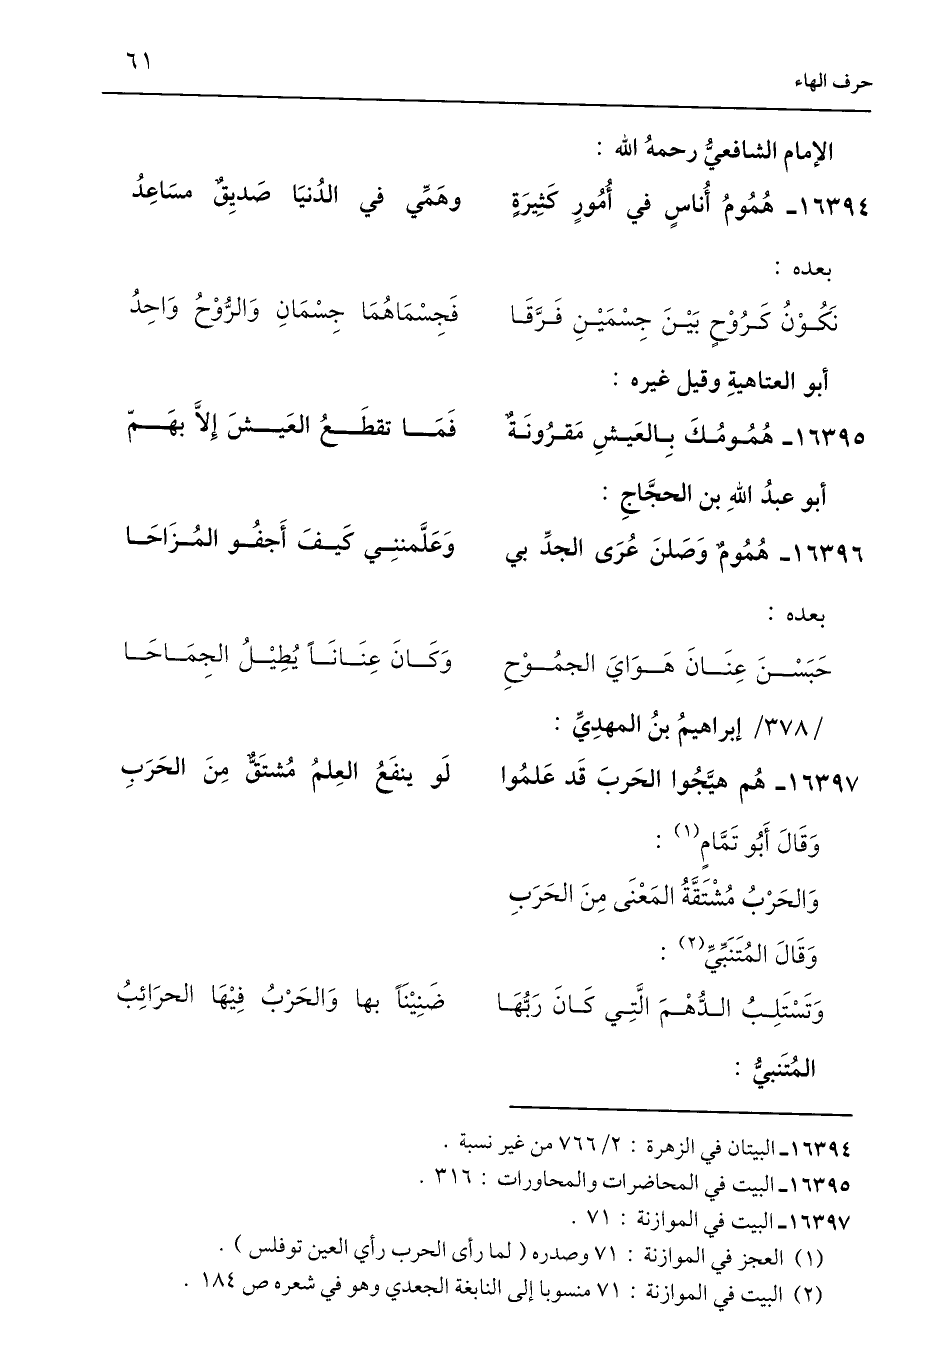 ٦١
حرف الهاء
الإمام الشافعيُّ رحمهُ الله :
١٦٣٩٤ـ هُمُومُ أُناسٍ في أُمُورٍ كَثِيرَةٍ وهَمِّي في الدُنيَا صَديقٌ مسَاعِدُ
بعده :
نَكُوْنُ كَرُوْحٍ بَيْنَ جِسْمَيْنِ فَرَّقَا فَجِسْمَاهُمَا جِسْمَانِ وَالرُّوْحُ وَاحِدُ
أبو العتاهيةِ وقيل غيره :
١٦٣٩٥ـ هُمُومُكَ بِالعَيشِ مَقرُونَةٌ فَمَا تقطَعُ العَيشَ إلاَّ بهَمّ
أبو عبدُ اللهِ بن الحجَّاجِ :
١٦٣٩٦ـ هُمُومٌ وَصَلنَ عُرَى الجدِّ بي وَعَلَّمننِي كَيفَ أَجفُو المُزَاحَا
بعده :
حَبَسْنَ عِنَانَ هَوَايَ الجمُوْحِ وَكَانَ عِنَانَاً يُطِيْلُ الجِمَاحَا
/٣٧٨/ إبراهيمُ بنُ المهدِيِّ :
١٦٣٩٧ـ هُم هيَّجُوا الحَربَ قَد عَلمُوا لَو ينفَعُ العِلمُ مُشتَقٌّ مِنَ الحَرَبِ
وَقَالَ أَبُو تَمَّامٍ(١) :
وَالحَرْبُ مُشْتَقَّةُ المَعْنَى مِنَ الحَرَبِ
وَقَالَ المُتَنَبِّيِّ(٢) :
وَتَسْتَلِبُ الدُّهْمَ الَّتِي كَانَ رَبُّهَا ضَنِيْنَاً بها وَالحَرْبُ فِيْهَا الحرائِبُ
المُتَنبيُّ :
١٦٣٩٤ـ البيتان في الزهرة : ٢/ ٧٦٦ من غير نسبة .
١٦٣٩٥ـ البيت في المحاضرات والمحاورات : ٣١٦ .
١٦٣٩٧ـ البيت في الموازنة : ٧١ .
(١) العجز في الموازنة : ٧١ وصدره ( لما رأى الحرب رأي العين توفلس ) .
(٢) البيت في الموازنة : ٧١ منسوبا إلى النابغة الجعدي وهو في شعره ص ١٨٤ .